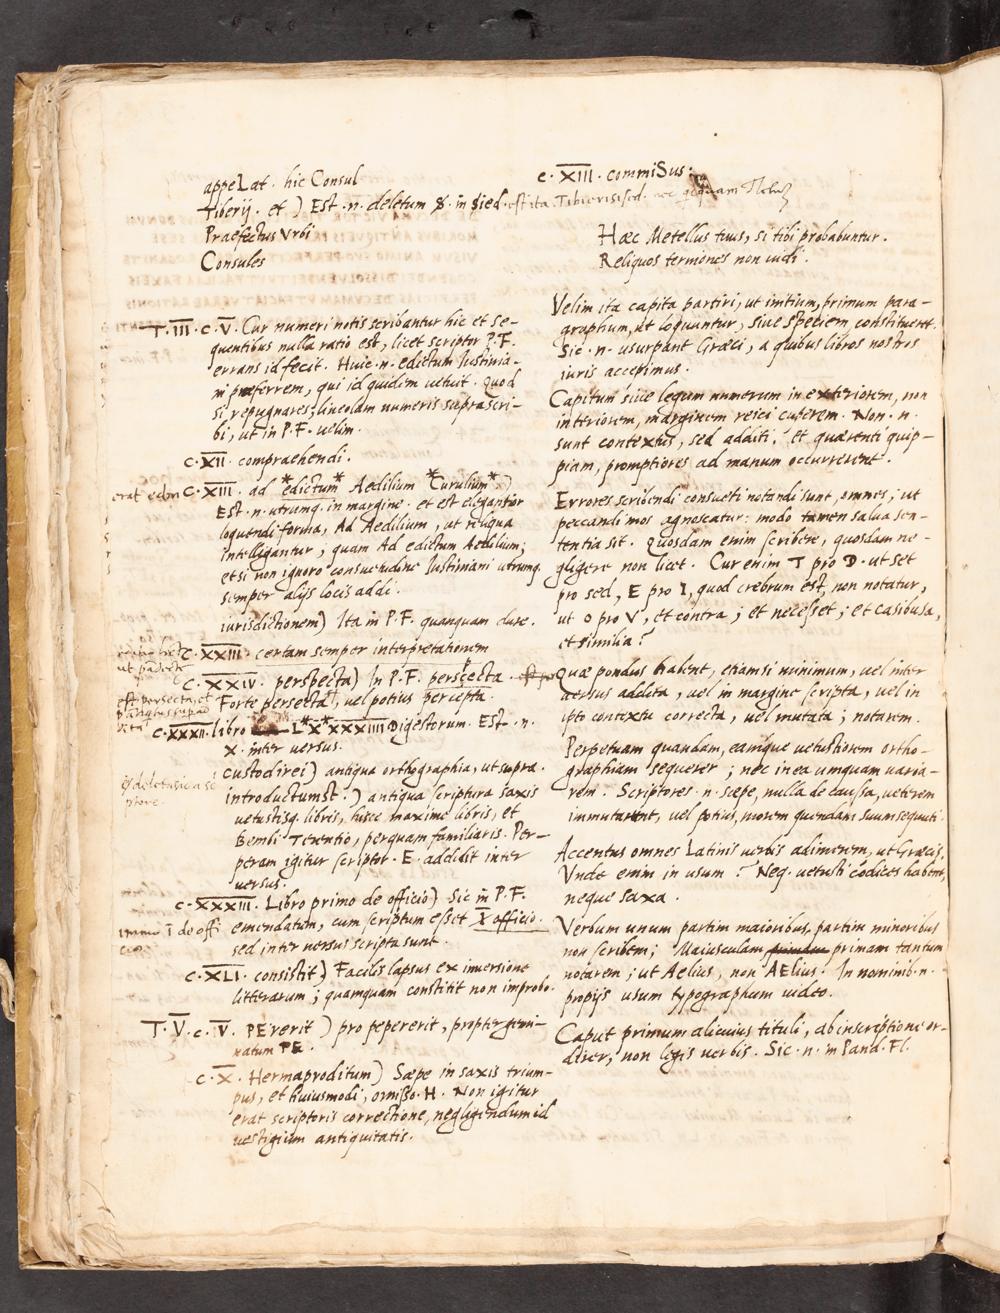 appeLat. hic Consul
Tiberij. et ) Est .n. deletum S. in sied. est ita. Tibierisised.
Praefectus Vrbi
Consules
T. III. c. V. Cur numeri notis scribantur hic et se-
quentibus nulla ratio est, licet scriptor P.F.
errans id fecit. Huic .n. edictum Iustinia-
ni praeferrem, qui id quidem vetuit. quod
si repugnares, lineolam numeris suprascri-
bi, ut in P.F. velim.
c. XII. compraehendi.
c. XIII. ad *edictum* Aedilium *Curulium* )
Est .n. utrumq. in margine. et est elegantior
loquendi forma, Ad Aedilium, ut reliqua
intelligantur, quam Ad edictum Aedilium;
etsi non ignoro consuetudine Iustiniani utrumq.
semper alijs locis addi.
iurisdictionem) Ita in P.F. quanquam dure.
c. XXIII. certam semper interpretationem
ut
c. XXIV. perspecta) In P.F. perscecta.
Forte persecta, vel potius percepta.
est persecta, et
c. XXXII. libro L*X*XXXIIII Digestorum. Est .n.
X. inter versus.
custodirei) antiqua orthographia, ut supra.
introductumst.) antiqua scriptura saxis
vetustisq. libris, hisce maxime libris, et
Bembi Terentio, perquam familiaris. Per-
peram igitur scriptor .E. addidit inter
versus.
c. XXXIII. Libro primo de officio) Sic in P.F.
emendatum, cum scriptum esset I officio.
sed inter versus scripta sunt.
immo I de offi
cio.
c. XLI. consistit) Facilis lapsus ex inversione
litterarum; quamquam constitit non improbo.
T. V. c. IV. PErerit ) pro pepererit, propter gemi-
natum PE.
c. X. Hermaproditum) Saepe in saxis trium-
pus, et huiusmodi, omisso .H. Non igitur
erat scriptoris correctione, negligendum id
vestigium antiquitatis.
c. XIII. commiSus:
Haec Metellus tuus, si tibi probabuntur.
Reliquos termones non vidi.
Velim ita capita partiri, ut initium, primum para-
graphum, ut loquuntur, siue speciem, constitueret.
Sic .n. usurpant Graeci, a quibus libros nostros
iuris accepimus.
Capitum siue legum numerum in exteriorem, non
interiorem, marginem reici cuperem. Non .n.
sunt contextus, sed additi. et quaerenti quip-
piam, promptiores ad manum occurrerent.
Errores scribendi consueti notandi sunt, omnes; ut
peccandi mos agnoscatur: modo tamen salua sen-
tentia sit. Quosdam enim scribere, quosdam ne-
gligere non licet. Cur enim T pro D. ut set
pro sed, E pro I, quod crebrum est, non notatur,
ut O pro V, et contra; et necesset; et casibusa,
et similia?
Quae pondus habent, etiamsi minimum, vel inter
versus addita, vel in margine scripta, vel in
ipso contextu correcta, vel mutata; notarem.
Perpetuam quandam, eamque vetustiorem ortho-
graphiam sequerer; nec in ea umquam varia-
rem. Scriptores .n. saepe, nulla de caussa, veterem
immutarunt, vel potius, morem quendam suum sequuti.
Accentus omnes Latinis verbis adimerem, ut Graecis.
Vnde enim in usum? Neq. vetusti codices habent,
neque saxa.
Verbum unum partim maioribus, partim minoribus
non scribem; Maiusculam primam tantum
notarem; ut Aelius, non AElius. In nominib. n.
propijs usum typographum video.
Caput primum alicuius tituli, ab inscriptione or-
direr, non legis verbis. Sic .n. in Pand. Fl.